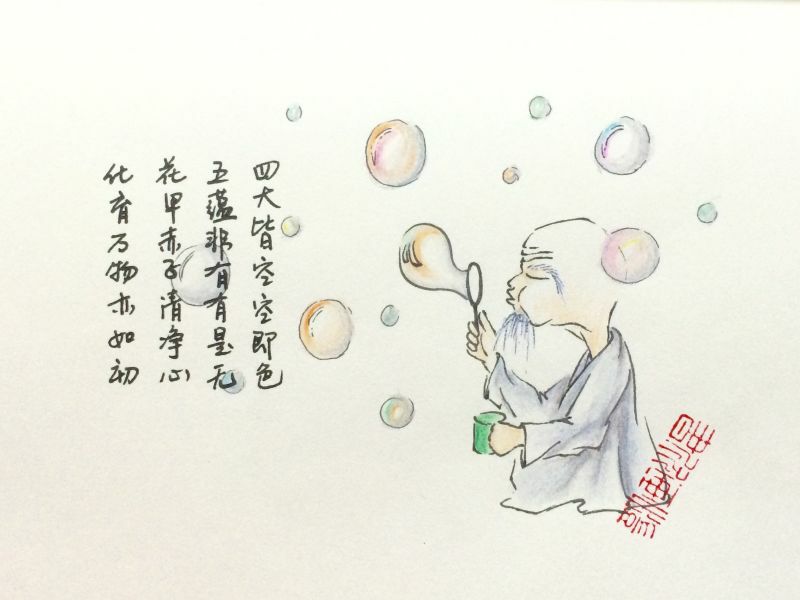 四大皆空空即色
五蕴非有有是无
花甲赤子清净心
化育万物亦如初